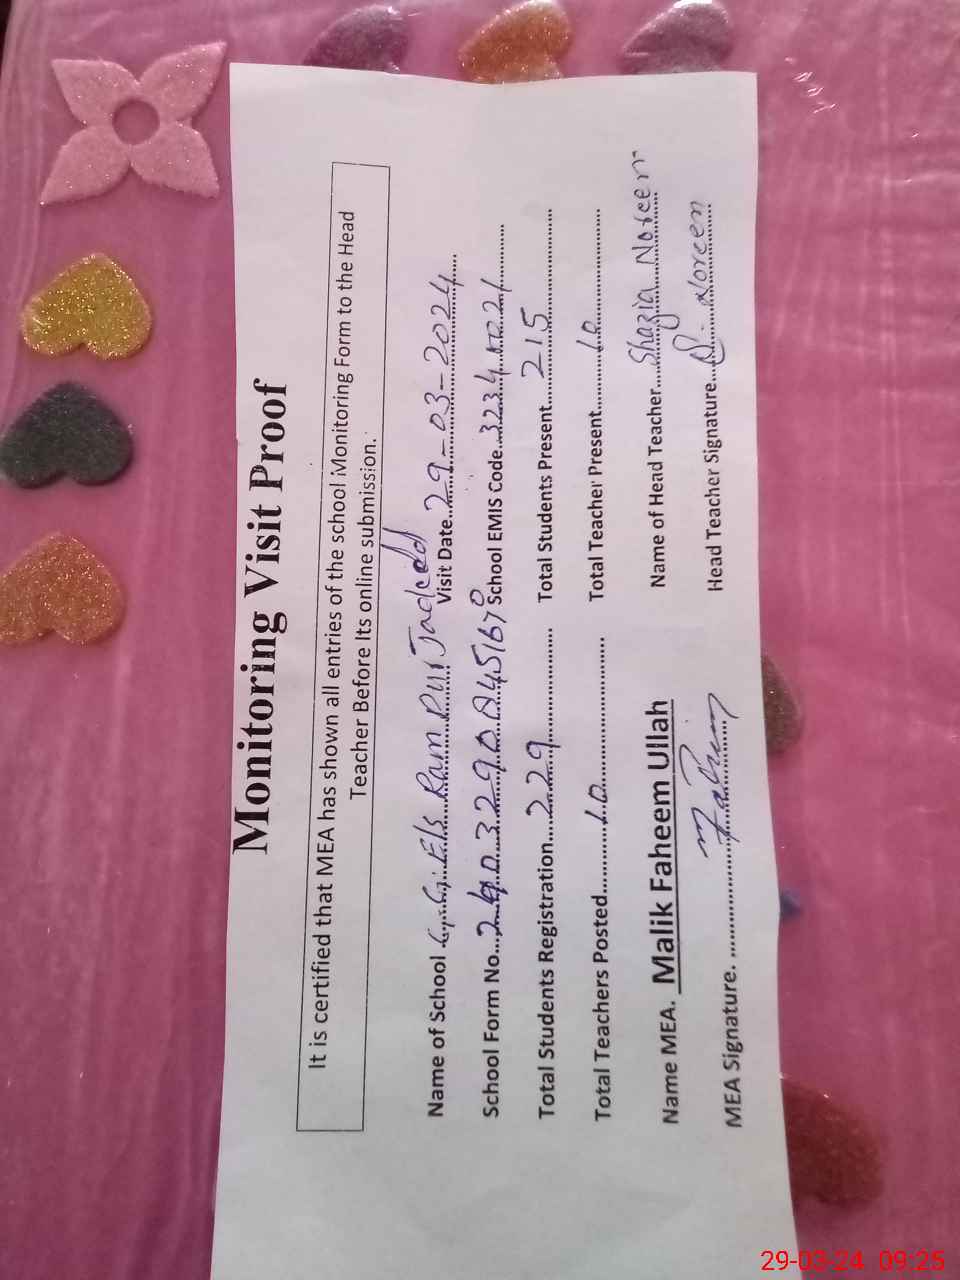 Monitoring Visit Proof
It is certified that MEA has shown all entries of the school Monitoring Form to the Head
Teacher Before Its online submission.
Name of School G.G.E/s Ram Pur Visit Date 29-03-2024
School Form No. School EMIS Code
Total Students Registration 229 Total Students Present 215
Total Teachers Posted 10 Total Teacher Present 10
Name MEA. Malik Faheem Ullah Name of Head Teacher Shazia Noreen
MEA Signature. Faheem Head Teacher Signature. S. Noreen
29-03-24 09:25